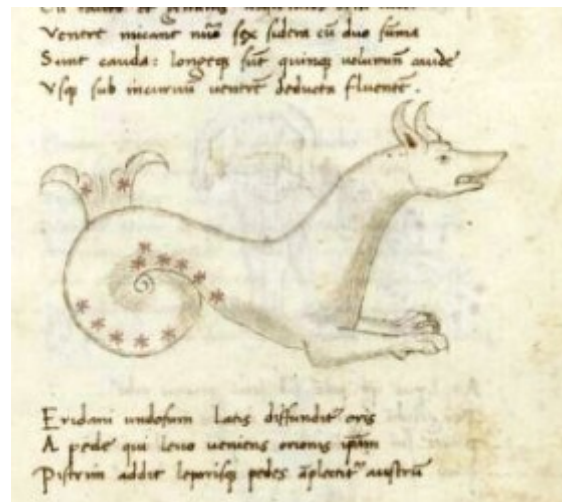 Ventre micant nũo sex sidera cũ duo sũma
Sunt cauda: longeqȝ sũt quinqȝ uolumĩ
Vsqȝ sub incuruũ uentrẽ deducta fluentẽ.
Eridani undosum latis diffundit oris
A pede qui leuo ueniens orionis
Pistrim addit leporisqȝ pedes ãplectit austrũ